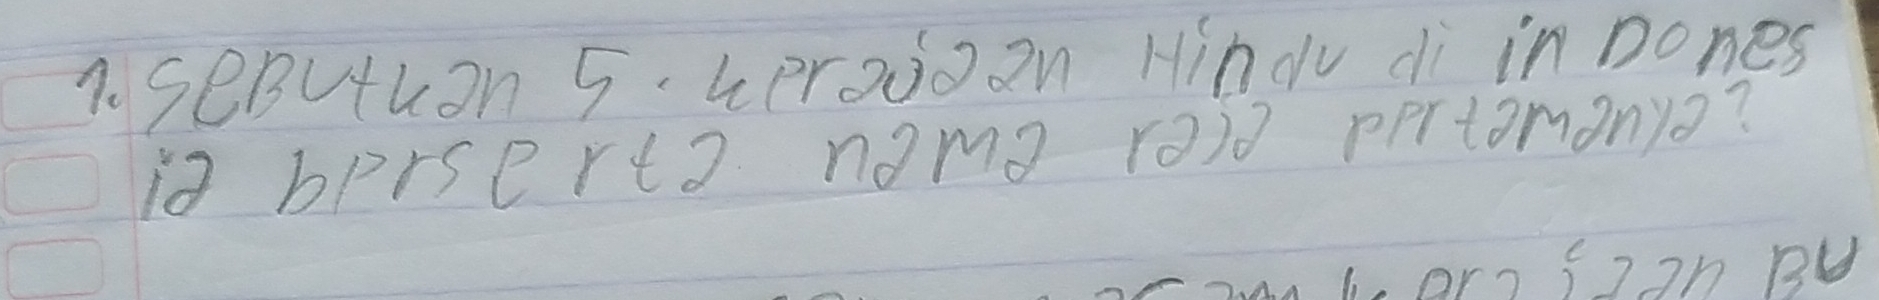 1. SeButkan 5. kerajaan Hindu di inDones
ia berserta nama raja pertamanya?
kerajaan Bu